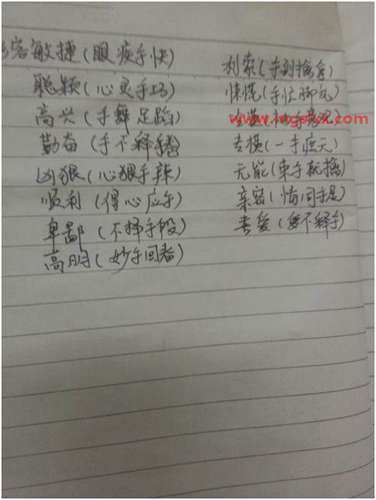 容敏捷(眼疾手快)
聪颖(心灵手巧)
高兴(手舞足蹈)
勤奋(手不释卷)
凶狠(心狠手辣)
顺利(得心应手)
卑鄙(不择手段)
高明(妙手回春)
利索(手到擒来)
惊慌(手忙脚乱)
专横(一手遮天)
无能(束手就擒)
亲密(情同手足)
喜爱(爱不释手)